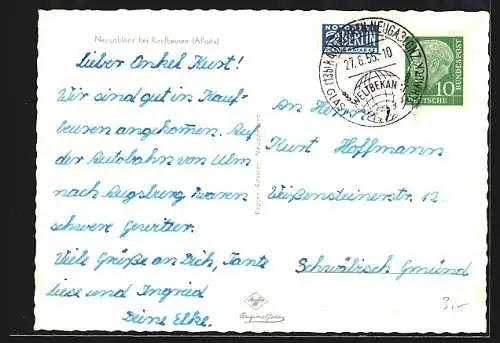 Neugablonz bei Kaufbeuren (Allgäu)
Lieber Onkel Kurt!
Wir sind gut in Kauf-
beuren angekommen. Auf
der Autobahn von Ulm
nach Augsburg waren
schwere Gewitter.
Viele Grüße an Dich, Tante
Liese und Ingried
Deine Elke.
NOTOPFER
2 BERLIN
27.6.55.10
WELTBEKANNT
10
DEUTSCHE BUNDESPOST
An Herrn
Kurt Hoffmann
Weißensteinerstr. 12
Schwäbisch Gmünd
3,-
Agfa